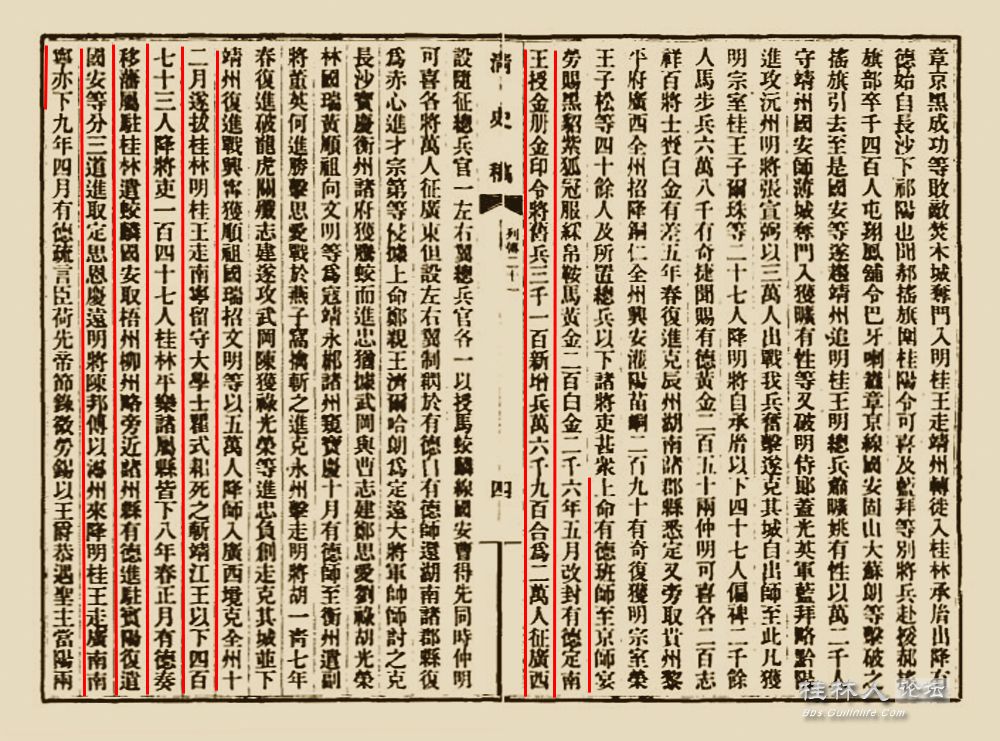 章京黑成功等敗敵焚木城奪門入明桂王走靖州轉徙入桂林承胤出降有
德始自長沙下祁陽也聞郝搖旗圍桂陽令可喜及藍拜等別將兵赴援郝搖
旗部卒千四百人屯翔鳳舖令巴牙喇纛章京線國安固山大蘇朗等擊破之
搖旗引去至是國安等遂趨靖州追明桂王明總兵蕭曠姚有性以萬二千人
守靖州國安師薄城奪門入獲曠有性等又破明侍郎蓋光英軍藍拜略黔陽
進攻沅州明將張宣弼以三萬人出戰我兵奮擊遂克其城自出師至此凡獲
明宗室桂王子爾珠等二十七人降明將自承胤以下四十七人偏裨二千餘
人馬步兵六萬八千有奇捷聞賜有德黃金二百五十兩仲明可喜各二百志
祥百將士賚白金有差五年春復進克辰州湖南諸郡縣悉定又旁取貴州黎
平府廣西全州招降銅仁全州興安灌陽苗峒二百九十有奇復獲明宗室榮
王子松等四十餘人及所置總兵以下諸將吏甚衆上命有德班師至京師宴
勞賜黑貂紫狐冠服綵帛鞍馬黃金二百白金二千六年五月改封有德定南
王授金册金印令將舊兵三千一百新增兵萬六千九百合爲二萬人征廣西
清史稿
列傳二十一
四
設隨征總兵官一左右翼總兵官各一以授馬蛟麟線國安曹得先同時仲明
可喜各將萬人征廣東但設左右翼制視於有德自有德師還湖南諸郡縣復
爲赤心進才宗第等侵據上命鄭親王濟爾哈朗爲定遠大將軍帥師討之克
長沙寶慶衡州諸府獲騰蛟而進忠猶據武岡與曹志建鄭思愛劉祿胡光榮
林國瑞黃順祖向文明等爲寇靖永郴諸州窺寶慶十月有德師至衡州遣副
將董英何進勝擊思愛戰於燕子窩擒斬之進克永州擊走明將胡一青七年
春復進破龍虎關殲志建遂攻武岡陳獲祿光榮等進忠負創走克其城並下
靖州復進戰興甯獲順祖國瑞招文明等以五萬人降師入廣西境克全州十
二月遂拔桂林明桂王走南寧留守大學士瞿式耜死之斬靖江王以下四百
七十三人降將吏一百四十七人桂林平樂諸屬縣皆下八年春正月有德奏
移藩屬駐桂林遣蛟麟國安取梧州柳州略旁近諸州縣有德進駐賓陽復遣
國安等分三道進取定思恩慶遠明將陳邦傅以潯州來降明桂王走廣南南
寧亦下九年四月有德疏言臣荷先帝節錄微勞錫以王爵恭遇聖主當陽兩
桂林人论坛
Bbs.Guilinlife.Com